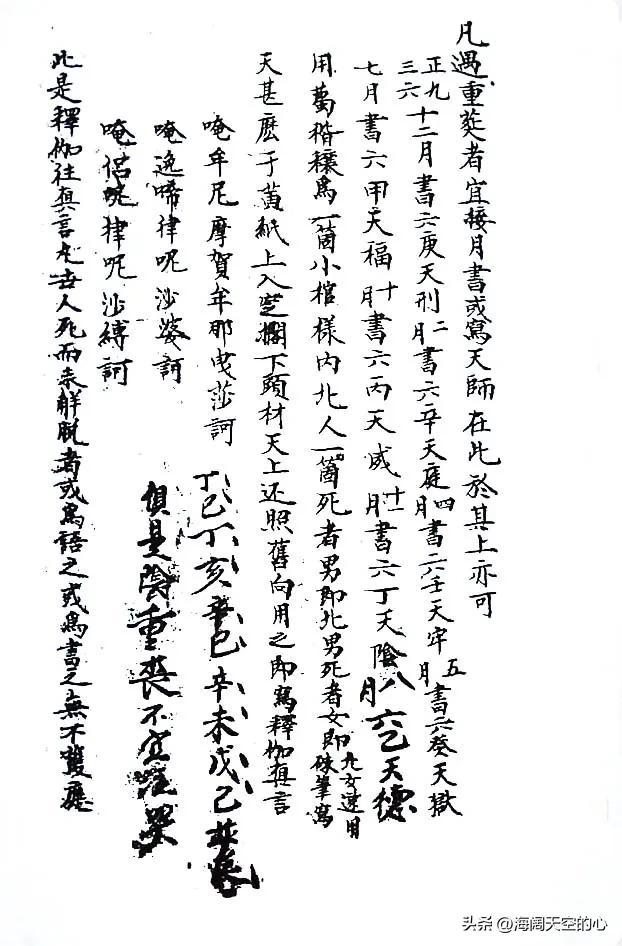 凡遇重喪者宜接月書或寫天師在此於其上亦可
正九三六十二月書六庚天刑二月書六辛天庭四月書六壬天牢五月書六癸天獄
七月書六甲天福十月書六丙天威十一月書六丁天陰八月六乙天德
用萬稭穰為一箇小棺樣內北人一箇死者男即北男死者女即北女速用硃筆寫
天甚麽于黃紙上入空擱下頭材天上还照舊向用之即寫釋伽真言
唵牟尼摩賀牟那曳莎訶
唵逸啼律呢沙婆訶
唵侶呢律呢沙縛訶
丁巳丁亥辛巳辛未戊己
俱是陰重喪不宜哭
此是釋伽往真言凡世人死而未解脫者或為語之或為書之無不雙應
头条 @海阔天空的心